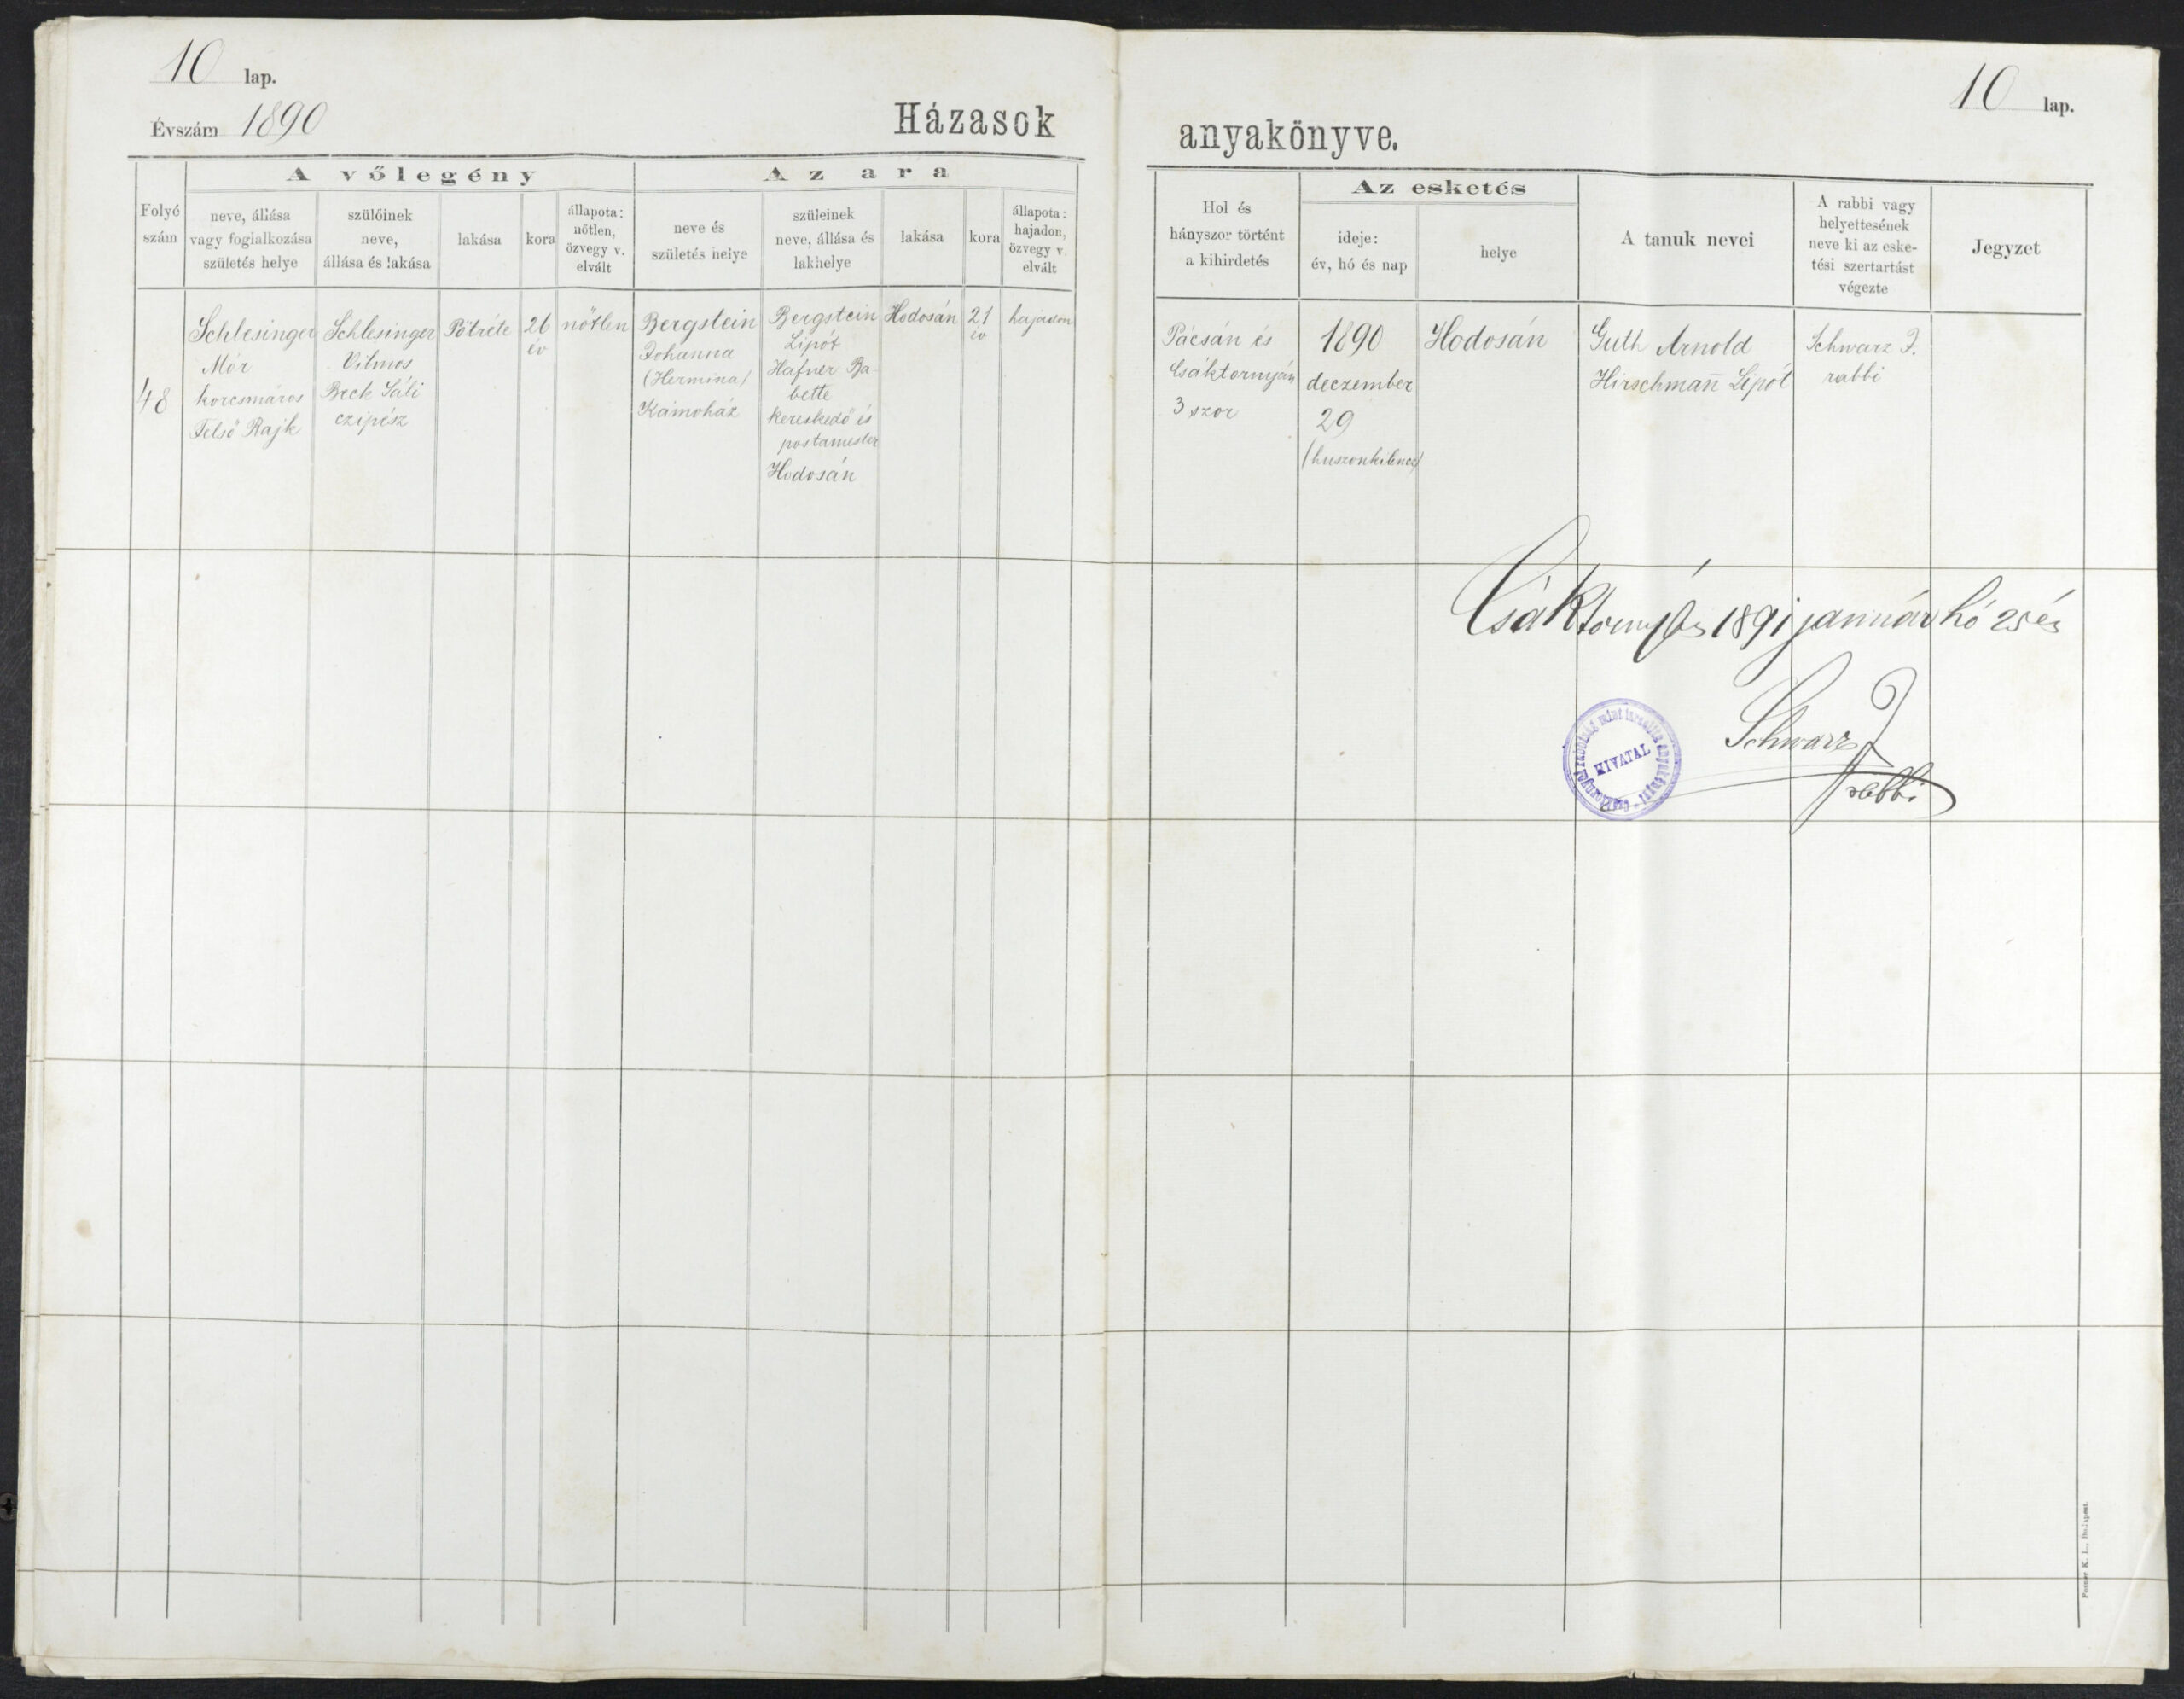 10 lap.
Évszám 1890
Házasok
A vőlegény
Az ara
Folyó
szám
neve, állása
vagy foglalkozása
születés helye
szülőinek
neve,
állása és lakása
lakása
kora
állapota:
nőtlen,
özvegy v.
elvált
neve és
születés helye
szüleinek
neve, állása és
lakhelye
lakása
kora
állapota:
hajadon,
özvegy v.
elvált
48
Schlesinger
Mór
korcsmáros
Felső Rajk
Schlesinger
Vilmos
Beck Sáli
czipész
Pötréte
26
év
nőtlen
Bergstein
Johanna
(Hermina)
Kámaház
Bergstein
Lipót
Hafner Ba
bette
kereskedő és
postamester
Hodosán
Hodosán
21
év
hajadon
10 lap.
anyakönyve.
Hol és
hányszor történt
a kihirdetés
Az esketés
ideje:
év, hó és nap
helye
A tanuk nevei
A rabbi vagy
helyettesének
neve ki az eske-
tési szertartást
végezte
Jegyzet
Pácsán és
Csáktornyán
3 szor
1890
deczember
29
(huszonkilencz)
Hodosán
Guth Arnold
Hirschmann Lipót
Schwarz J.
rabbi
Csáktornyán 1891 január hó 25 én
Schwarz J
rabbi
HIVATAL
Posner K. L., Budapest.